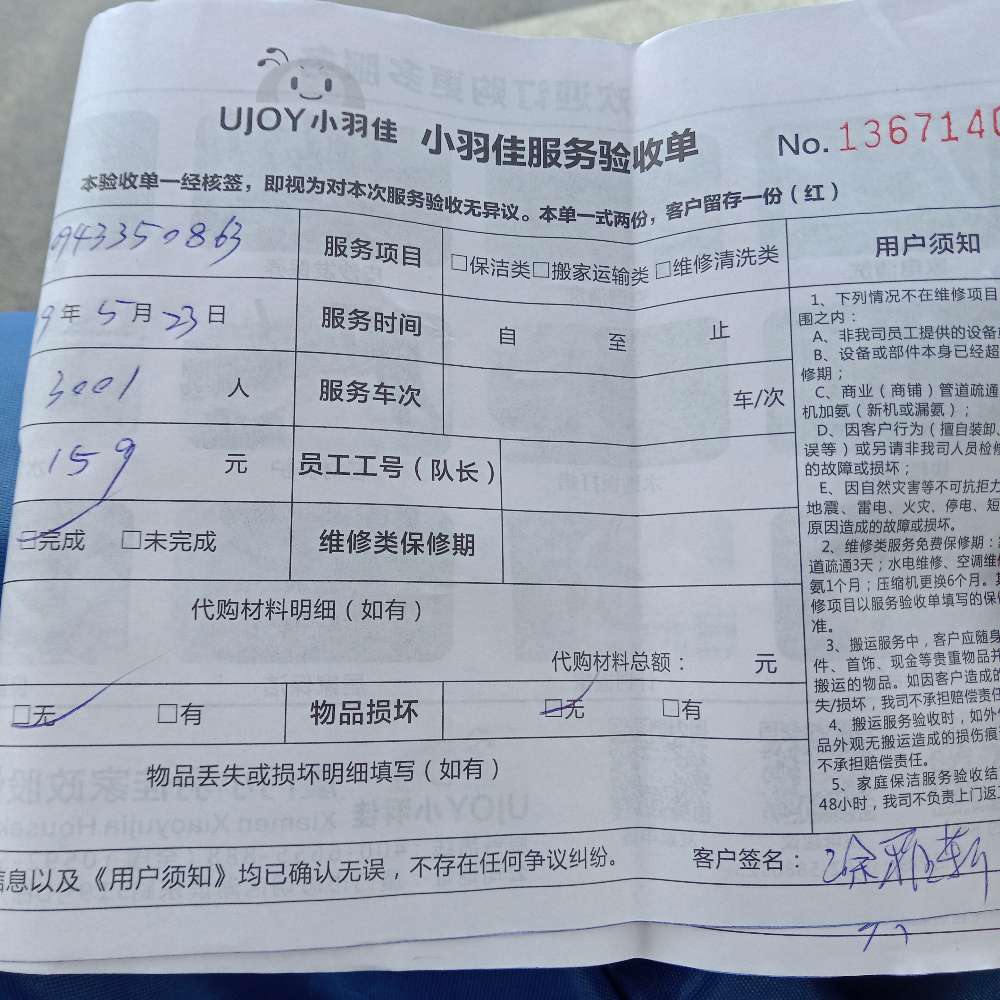 UJOY小羽佳 小羽佳服务验收单 No. 1367140
本验收单一经核签，即视为对本次服务验收无异议。本单一式两份，客户留存一份（红）
0943350863 服务项目 □保洁类□搬家运输类□维修清洗类 用户须知
9年5月23日 服务时间 自 至 止
3001 人 服务车次 车/次
159 元 员工工号（队长）
□完成 □未完成 维修类保修期
代购材料明细（如有）
代购材料总额： 元
□无 □有 物品损坏 □无 □有
物品丢失或损坏明细填写（如有）
信息以及《用户须知》均已确认无误，不存在任何争议纠纷。 客户签名：
1、下列情况不在维修项目
围之内：
A、非我司员工提供的设备
B、设备或部件本身已经超
修期；
C、商业（商铺）管道疏通
机加氨（新机或漏氨）；
D、因客户行为（擅自装卸、
误等）或另请非我司人员检修
的故障或损坏；
E、因自然灾害等不可抗拒力
地震、雷电、火灾、停电、短
原因造成的故障或损坏。
2、维修类服务免费保修期：
道疏通3天；水电维修、空调维
氨1个月；压缩机更换6个月。
修项目以服务验收单填写的保
准。
3、搬运服务中，客户应随身
件、首饰、现金等贵重物品并
搬运的物品。如因客户造成的
失/损坏，我司不承担赔偿责任
4、搬运服务验收时，如外
品外观无搬运造成的损伤痕
不承担赔偿责任。
5、家庭保洁服务验收结
48小时，我司不负责上门返工